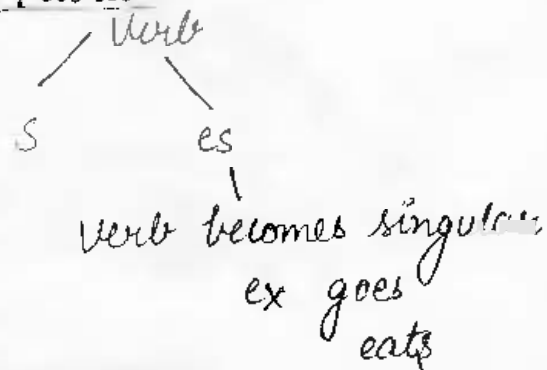 Verb
s es
verb becomes singular
ex goes
eats